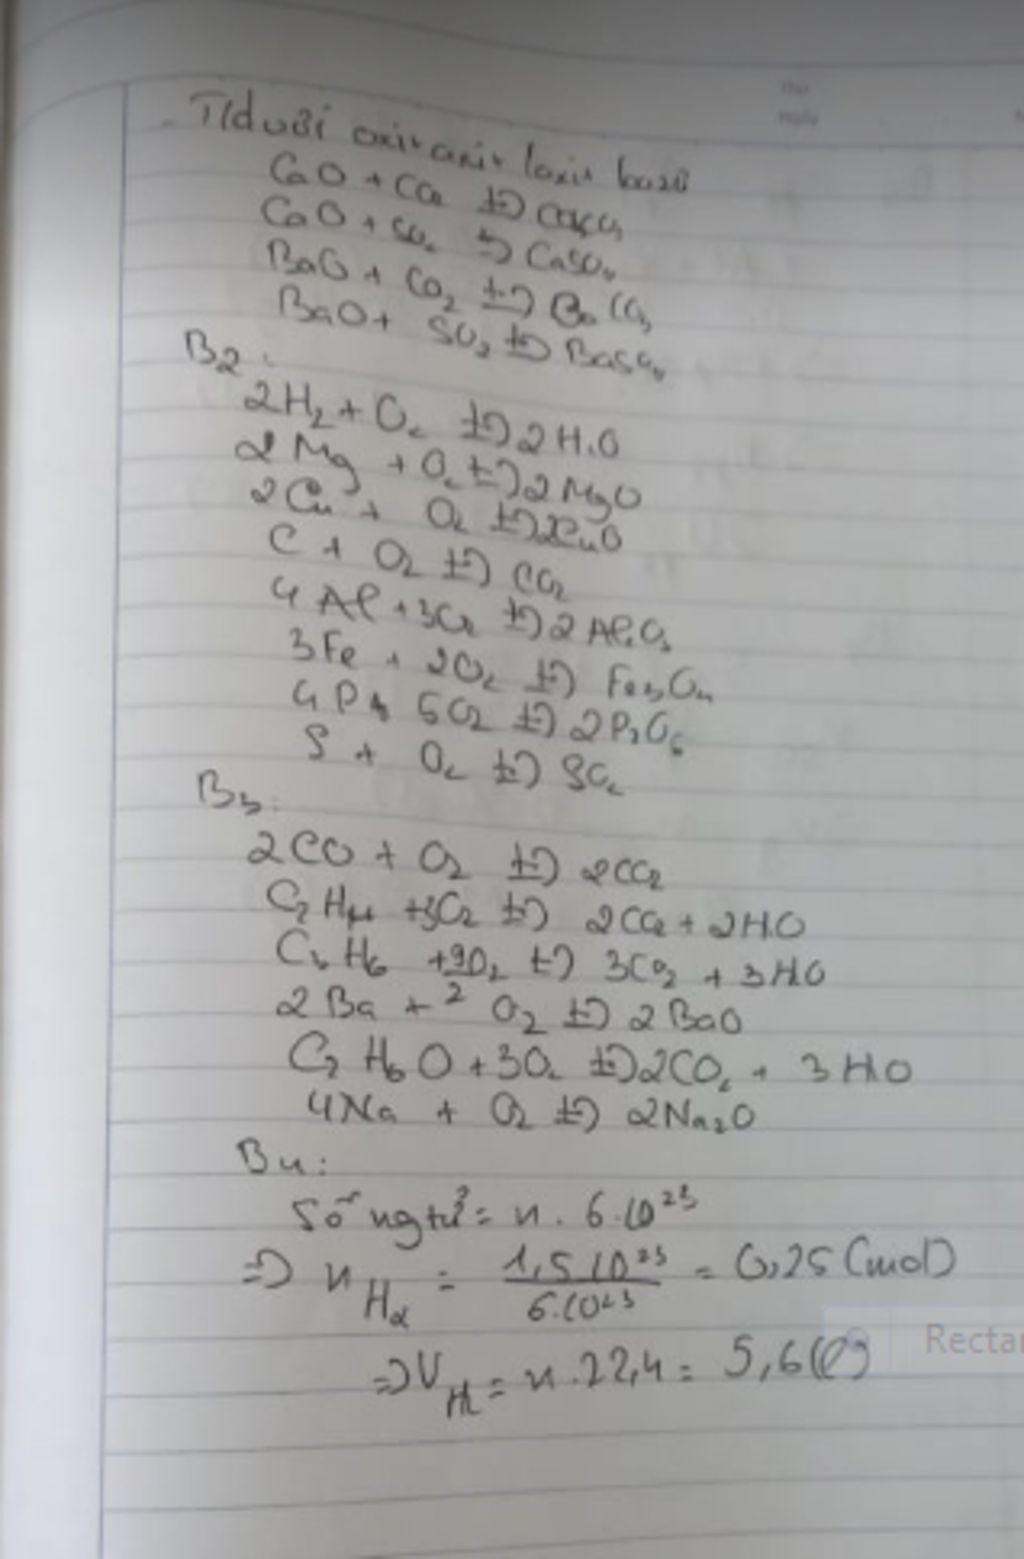 - T/d với oxit axit loxit bazơ
CaO + CO₂ →(t°) CaCO₃
CaO + SO₂ → CaSO₄
BaO + CO₂ →(t°) BaCO₃
BaO + SO₂ →(t°) BaSO₄
B2:
2H₂ + O₂ →(t°) 2H₂O
2Mg + O₂ →(t°) 2MgO
2Cu + O₂ →(t°) 2CuO
C + O₂ →(t°) CO₂
4Al + 3O₂ →(t°) 2Al₂O₃
3Fe + 2O₂ →(t°) Fe₃O₄
4P + 5O₂ →(t°) 2P₂O₅
S + O₂ →(t°) SO₂
B3:
2CO + O₂ →(t°) 2CO₂
C₂H₄ + 3O₂ →(t°) 2CO₂ + 2H₂O
C₃H₆ + 9/2 O₂ →(t°) 3CO₂ + 3H₂O
2Ba + O₂ →(t°) 2BaO
C₂H₆O + 3O₂ →(t°) 2CO₂ + 3H₂O
4Na + O₂ →(t°) 2Na₂O
B4:
Số ngtử = n . 6.10²³
=> n H₂ = 1,5.10²³ / 6.10²³ = 0,25 (mol)
Rectan
=> V H₂ = n . 22,4 = 5,6 (l)